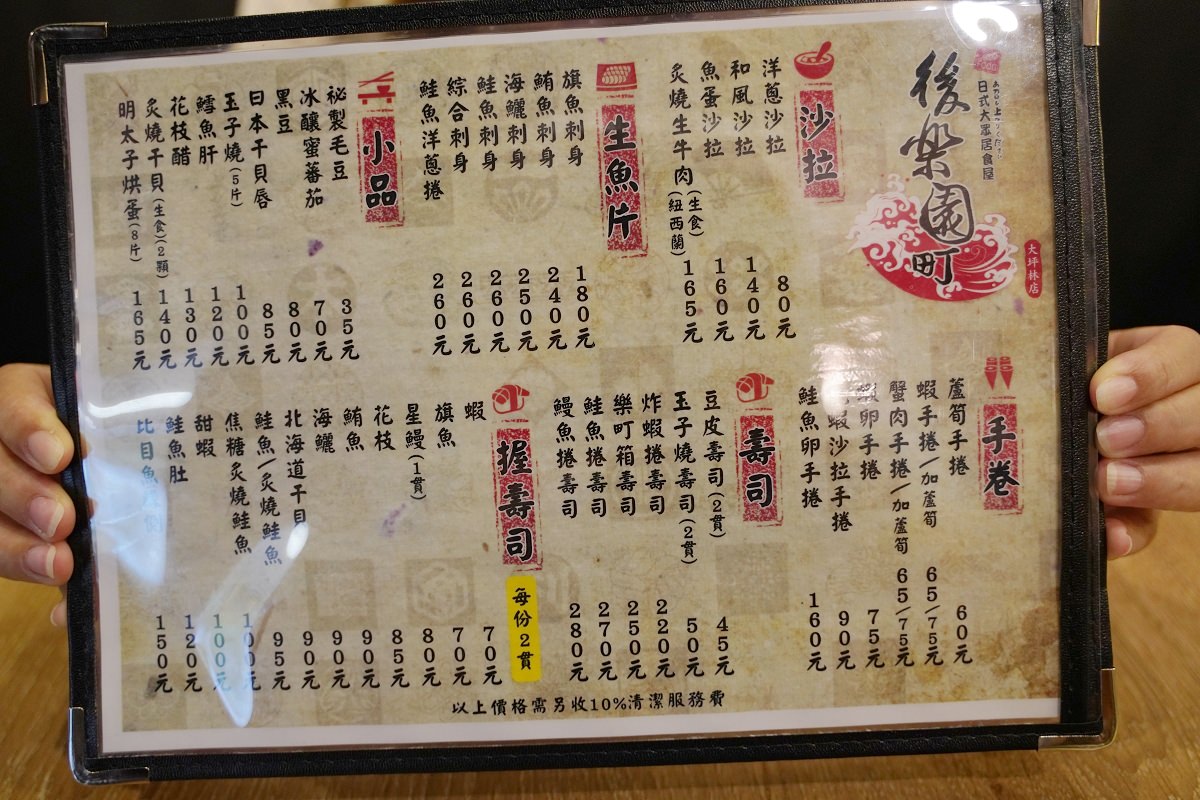 後樂園町
日式大眾居食屋
大坪林店
沙拉
洋蔥沙拉 80元
和風沙拉 140元
魚蛋沙拉 160元
炙燒生牛肉(生食)(紐西蘭) 165元
生魚片
旗魚刺身 180元
鮪魚刺身 240元
海鱺刺身 250元
鮭魚刺身 260元
綜合刺身 260元
鮭魚洋蔥捲 260元
小品
祕製毛豆 35元
冰釀蜜蕃茄 70元
黑豆 80元
日本干貝唇 85元
玉子燒(5片) 100元
鱈魚肝 120元
花枝醋 130元
炙燒干貝(生食)(2顆) 140元
明太子烘蛋(8片) 165元
手卷
蘆筍手捲 60元
蝦手捲/加蘆筍 65/75元
蟹肉手捲/加蘆筍 65/75元
卵手捲 75元
蝦沙拉手捲 90元
鮭魚卵手捲 160元
壽司
豆皮壽司(2貫) 45元
玉子燒壽司(2貫) 50元
炸蝦捲壽司 220元
樂町箱壽司 250元
鮭魚捲壽司 270元
鰻魚捲壽司 280元
握壽司
每份2貫
蝦 70元
旗魚 70元
星鰻(1貫) 80元
花枝 85元
鮪魚 90元
海鱺 90元
北海道干貝 90元
鮭魚/炙燒鮭魚 95元
焦糖炙燒鮭魚 100元
甜蝦 100元
鮭魚肚 120元
比目魚 150元
以上價格需另收10%清潔服務費